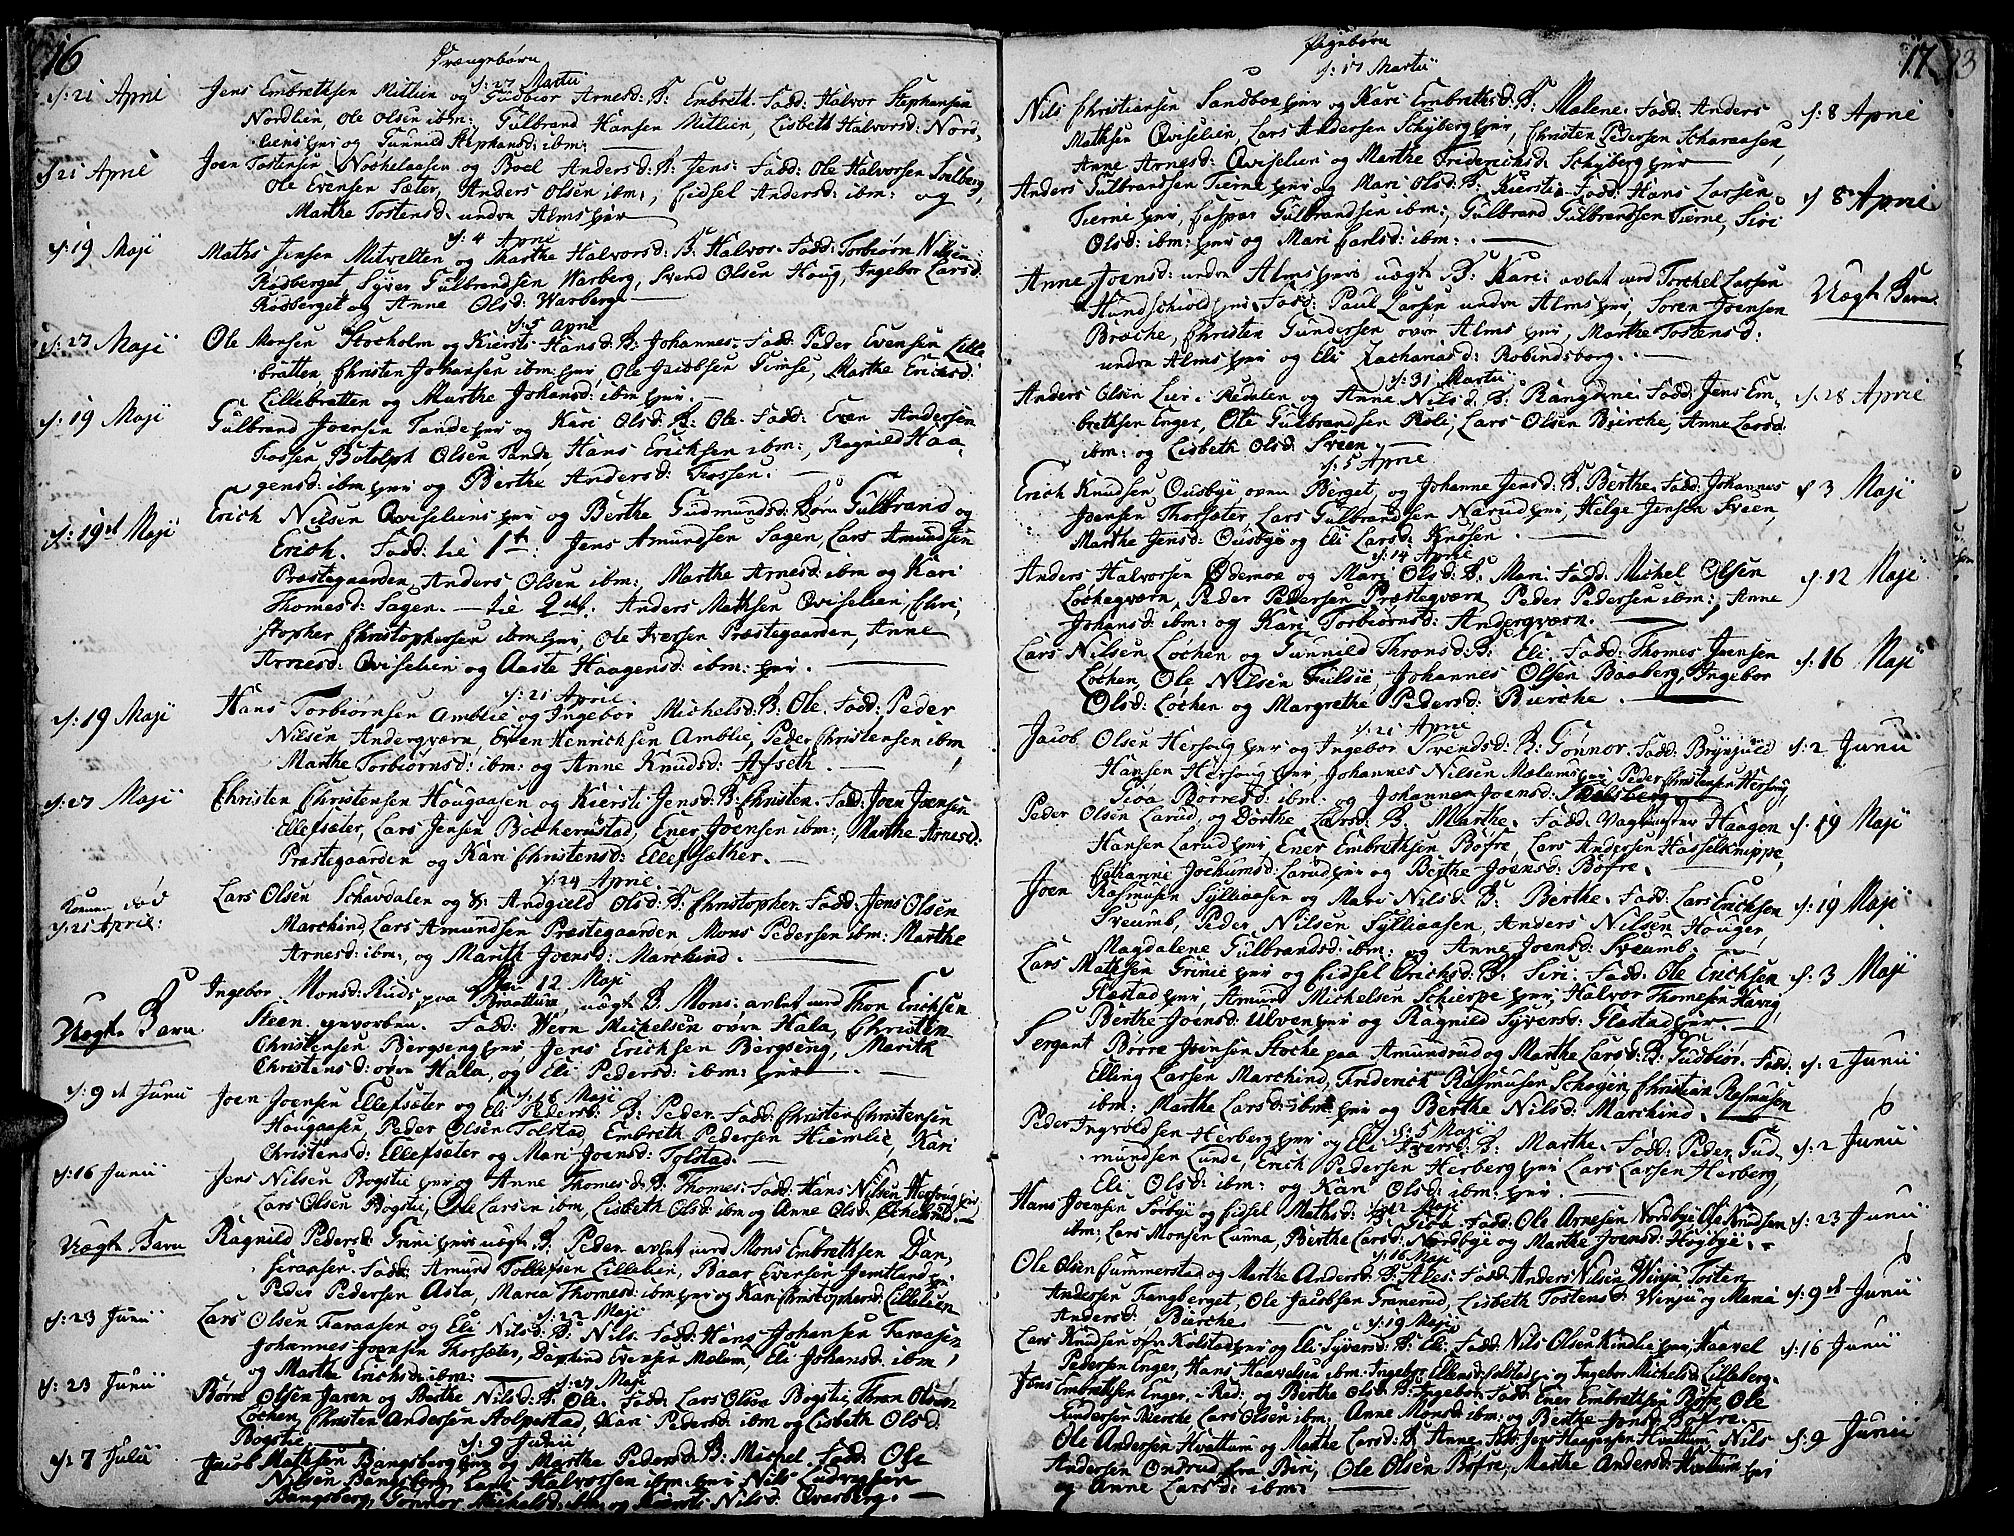 16
Drængebørn
d: 27 Martii
d: 21 April Jens Embrethsen Mittlien og Gudbior Arnesd: B: Embreth. Fadd: Halvor Stephansen
Nordlien, Ole Olsen ibm:, Gulbrand Hansen Mitlien, Lisbeth Halvorsd: Nord-
liens eyer og Gunnild Stephansd: ibm:
d 21 April Joen Tostensen Noshelaasen og Boel Andersd: B: Jens. Fadd: Ole Halvorsen Solberg,
Ole Evensen Sæter, Anders Olsen ibm:, Eidsel Andersd: ibm: og
Marthe Tostensd: undre Alms eyer
d: 4 April
d: 19 Maji Maths Jensen Mitvetten og Marthe Halvorsd: B: Halvor. Fadd: Torbiørn Nilsen
Rødberget, Syver Gulbrandsen Warberg, Svend Olsen Houg, Ingebor Larsd:
Rødberget og Anne Olsd: Warberg
d: 5 April
d: 27 Maji Ole Monsen Stocholm og Kiersti Hansd: B: Johannes. Fadd: Peder Evensen Lille
bratten, Christen Johansen ibm: eyer, Ole Jacobsen Gimse, Marthe Ericsd:
Lillebratten og Marthe Johansd: ibm: eyer.
d: 19 Maji Gulbrand Joensen Tande eyer og Kari Olsd: B: Ole. Fadd: Even Andersen
Fossen, Botolph Olsen Tande, Hans Ericksen ibm:, Ragnild Haa-
gensd: ibm: eyer og Berthe Andersd: Fossen.
d: 19de Maji Erich Nilsen Qviseliens eyer og Berthe Gudmundsd: Børn Gulbrand og
Erich. Fadd: til 1te: Jens Amundsen Sagen, Lars Amundsen
Præstegaarden, Anders Olsen ibm:, Marthe Arnesd: ibm og Kari
Thomesd: Sagen. — til 2det: Anders Mathsen Qviselien, Chri-
stopher Christophersen ibm: eyer, Ole Iversen Præstegaarden, Anne
Arnesd: Qviselien og Aaste Haagensd: ibm: eyer.
d: 21 April.
d: 19 Maji Hans Torbiørnsen Amblie og Ingebor Michelsd: B: Ole. Fadd: Peder
Nilsen Andergværn, Even Henrichsen Amblie, Peder Christensen ibm
Marthe Torbiørnsd: ibm: og Anne Knudsd: Afseth.
d: 27 Maji Christen Christensen Hougaasen og Kiersti Jensd: B: Christen. Fadd: Joen Joensen
Ellefsæter, Lars Jensen Bocherustad, Ener Joensen ibm:, Marthe Arnesd:
Præstegaarden og Kari Christensd: Ellefsæther.
d: 24 April.
d: 21 April: Lars Olsen Schavdalen og Andgield Olsd: B: Christopher. Fadd: Jens Olsen
Marchind, Lars Amundsen Præstegaarden Mons Pedersen ibm: Marthe
Arnesd: ibm:, og Marith Joensd: Marchind.
12 Maji
Uægte Barn Ingebor Monsd: Ruds, paa Braattum, uægte B: Mons. avlet med Thor Erichsen
Steen. Fadd: Wern Michelsen øvre Hala, Christen
Christensen Bergseng eyer, Jens Erichsen Bergseng, Marith
Christensd: øvre Hala, og Eli Pedersd: ibm: eyer.
d: 16 Maji
d: 9de Junii Joen Joensen Ellefsæter og Eli Pedersd: B: Peder. Fadd: Christen Christensen
Hougaasen, Peder Olsen Tolstad, Embreth Pedersen Hiemlie, Kari
Christensd: Ellefsæter og Mari Joensd: Tolstad.
d: 16 Junii Jens Nilsen Bogstie eyer og Anne Thomesd: B: Thomes. Fadd: Hans Nilsen Hersoug eyer
Lars Olsen Bogstie, Ole Larsen ibm, Lisbeth Olsd: ibm og Anne Olsd:
Uægte Barn Ragnild Pedersd: Grini eyer uægte B: Peder avlet med Mons Embrethsen Dan-
seraasen. Fadd: Amund Tollefsen Lillelien, Baar Evensen Jemtland eyer
Peder Pedersen Asta, Maria Thomesd: ibm eyer og Kari Christophersd: Lillelien
d: 22 Maji
d: 23 Junii Lars Olsen Faraasen og Eli Nilsd: B: Nils. Fadd: Hans Johansen Faraasen,
Johannes Joensen Thorsæter, Daphind Evensen Mælum, Eli Johansd: ibm,
og Marthe Erichsd: ibm:
d: 27 Maji
d: 23 Junii Børre Olsen Jaren og Berthe Nilsd: B: Ole. Fadd: Lars Olsen Bogstie, Thron Olsen
Løchen, Christen Andersen Stolpestad, Kari Pedersd: ibm og Lisbeth Olsd:
Bogstie.
d: 9 Junii
d: 7 Julii Jacob Mathsen Bangsberg eyer og Marthe Pedersd: B: Michel. Fadd: Ole
Nilsen Bangsberg, Lars Halvorsen ibm: eyer Nils Ludvigsen
Bangsberg, Gonnor Michelsd: ibm og Kiersti Nilsd: Qvarberg.
17
Pigebørn
d: 17 Martii
Nils Christiansen Sandboe eyer og Kari Embrethsd: B: Malene. Fadd: Anders d: 8 April
Mathsen Qviselien, Lars Andersen Schyberg eyer, Christen Pedersen Scharaasen,
Anne Arnesd: Qviselien og Marthe Friderichsd: Schyberg eyer
Anders Gulbrandsen Tierne eyer og Mari Olsd: B: Kiersti. Fadd: Hans Larsen d 8 April
Tierne eyer, Caspar Gulbrandsen ibm:, Gulbrand Gulbrandsen Tierne, Siri
Olsd: ibm: eyer og Mari Carlsd: ibm:.
Anne Joensd: undre Alms eyer uægte B: Kari: avlet med Torchel Larsen Uægte Barn.
Hundschiold eyer. Fadd: Paul Larsen undre Alms eyer, Søren Joensen
Broche, Christen Gundersen øvre Alms eyer, Marthe Tostensd:
undre Alms eyer og Eli Zachariasd: Robindsborg.
d: 31 Martii
Anders Olsen Lier i Redalen og Anne Nilsd: B: Rangdine. Fadd: Jens Em- d: 28 April
brethsen Enger, Ole Gulbrandsen Roli, Lars Olsen Bierche, Anne Larsd:
ibm: og Lisbeth Olsd: Sveen.
d: 5 April
Erich Knudsen, Ousbye, oven Berget, og Johanne Jensd: B: Berthe. Fadd: Johannes d 3 Maji
Joensen Thorsæter, Lars Gulbrandsen Narud eyer, Helge Jensen Sveen,
Marthe Jensd: Ousbye og Eli Larsd: Knossen.
d: 14 April
Anders Halvorsen Ødemoe og Mari Olsd: B: Mari. Fadd: Michel Olsen d: 12 Maji
Løchegværn, Peder Pedersen Præstegværn, Peder Pedersen ibm:, Anne
Johansd: ibm: og Kari Torbiørnsd: Andergværn.
Lars Nilsen Løchen og Gunnild Thronsd: B: Eli. Fadd: Thomes Joensen d: 16 Maji
Løchen, Ole Nilsen Fulsie, Johannes Olsen Baaberg, Ingebor
Olsd: Løchen og Margrethe Pedersd: Bierche.
d: 21 April
Jacob Olsen Hersoug eyer og Ingebor Svendsd: B: Gonnor. Fadd: Brynjuld d: 2 Junii
Hansen Hersoug eyer Johannes Nilsen Mælums eyer Peder Christensen Hersoug,
Gioa Børresd: ibm: og Johanne Joensd:
Peder Olsen Larud, og Dorthe Larsd: B. Marthe. Fadd: Vagtmester Haagen d: 19 Maji
Hansen Larud eyer, Ener Embrethsen Bofre, Lars Andersen Hasselknippe,
Catharine Jochumsd: Larud eyer og Berthe Joensd: Bofre.
Joen Rasmusen Sylliaasen og Mari Nilsd: B. Berthe. Fadd: Lars Erichsen d: 19 Maji
Sveumb, Peder Nilsen Sylliaasen, Anders Nilsen Houger,
Magdalene Gulbrandsd: ibm: og Anne Joensd: Sveumb.
Lars Mathsen Grinie eyer og Eidsel Erichsd: B. Siri. Fadd: Ole Erichsen d: 3 Maji
Glæstad eyer, Amund Michelsen Schierpe eyer, Halvor Thomesen Havig,
Berthe Joensd: Ulven eyer og Ragnild Syversd: Glæstad eyer.
Sergant Børre Joensen Stoche paa Amundrud og Marthe Larsd: B: Gudbior. Fadd: d: 2 Junii
Elling Larsen Marchind, Friderich Rasmusen Schogen, Christian Rasmusen
ibm: Marthe Larsd: ibm eyer og Berthe Nilsd: Marchind.
d: 5 Maji
Peder Ingvoldsen Herberg eyer og Eli Iversd: B. Marthe. Fadd: Peder Gud- d: 2 Junii
mundsen Lunde, Erich Pedersen Herberg eyer Lars Larsen Herberg,
Eli Olsd: ibm: og Kari Olsd: ibm: eyer.
d: 12 Maji
Hans Joensen Sørbye og Eidsel Mathsd: B: Gioa. Fadd: Ole Arnesen Nordbye, Ole Knudsen d: 23 Junii
ibm: Lars Monsen Lunna, Berthe Larsd: Nordbye og Marthe Joensd: Høgbye.
d: 16 Maji
Ole Olsen Gummerstad og Marthe Andersd: B: Ales: Fadd: Anders Nilsen Winju, Tosten d: 9de Junii
Andersen Fangberget, Ole Jacobsen Tranerud, Lisbeth Tostensd: Winju og Maria
Andersd: Bierche
d: 19 Maji
Lars Knudsen øfre Kolstad eyer og Eli Syversd: B: Eli. Fadd: Nils Olsen Kindlie eyer, Haavel d: 16 Junii
Pedersen Enger, Hans Haavelsen ibm: Ingebor Ellensd: Kolstad eyer og Ingebor Michelsd: Lilleberg.
Jens Embrethsen Enger, i Red: og Berthe Olsd: B: Ingebor. Fadd: Ener Embrethsen Bofre, Ole
Gundersen Bierche, Lars Olsen ibm:, Anne Monsd: ibm: og Berthe Joensd: Bofre.
Ole Andersen Hvattum og Marthe Larsd: B: Anne. Fadd: Jens Haagensen Hvattum, Nils d: 9 Junii
Andersen Ondrud fra Biri, Ole Olsen Bofre, Marthe Andersd: Hvattum eyer
og Anne Larsd: ibm: